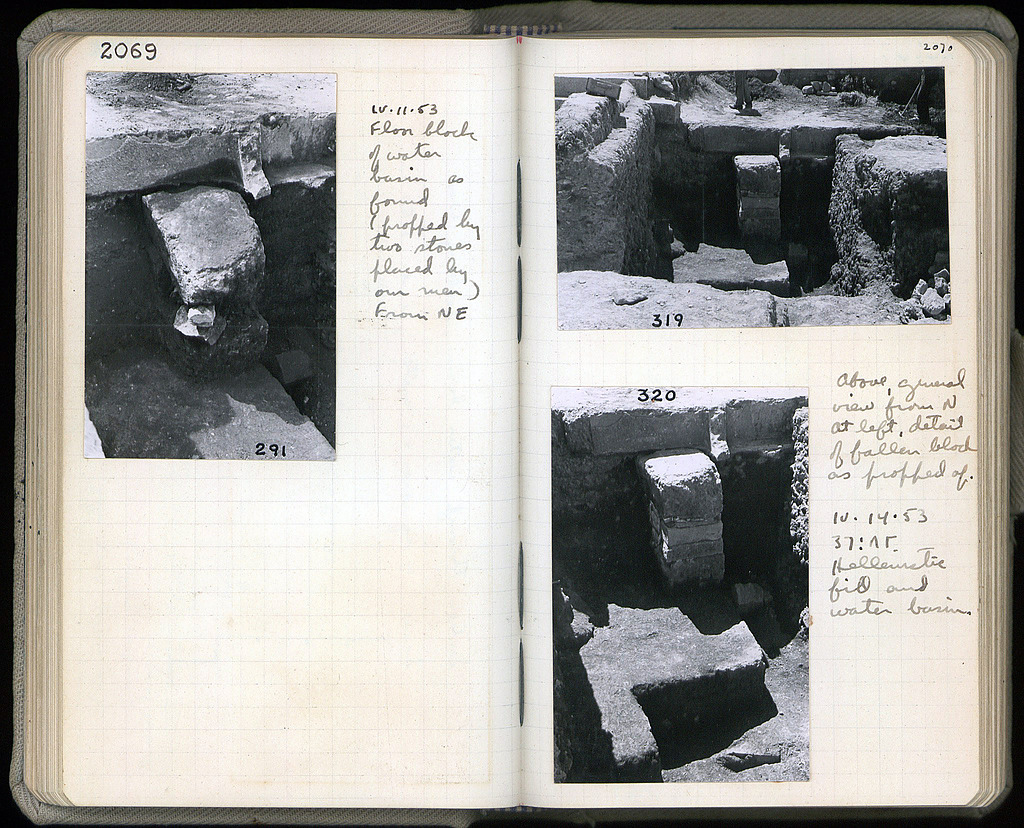 2069
IV·11·53
Floor block
of water
basin as
found
(propped by
two stones
placed by
our men)
From NE
291
2070
319
320
Above, general
view from N
at left, detail
of fallen block
as propped up.
IV·14·53
37:ΛΓ
Hellenistic
fill and
water basin